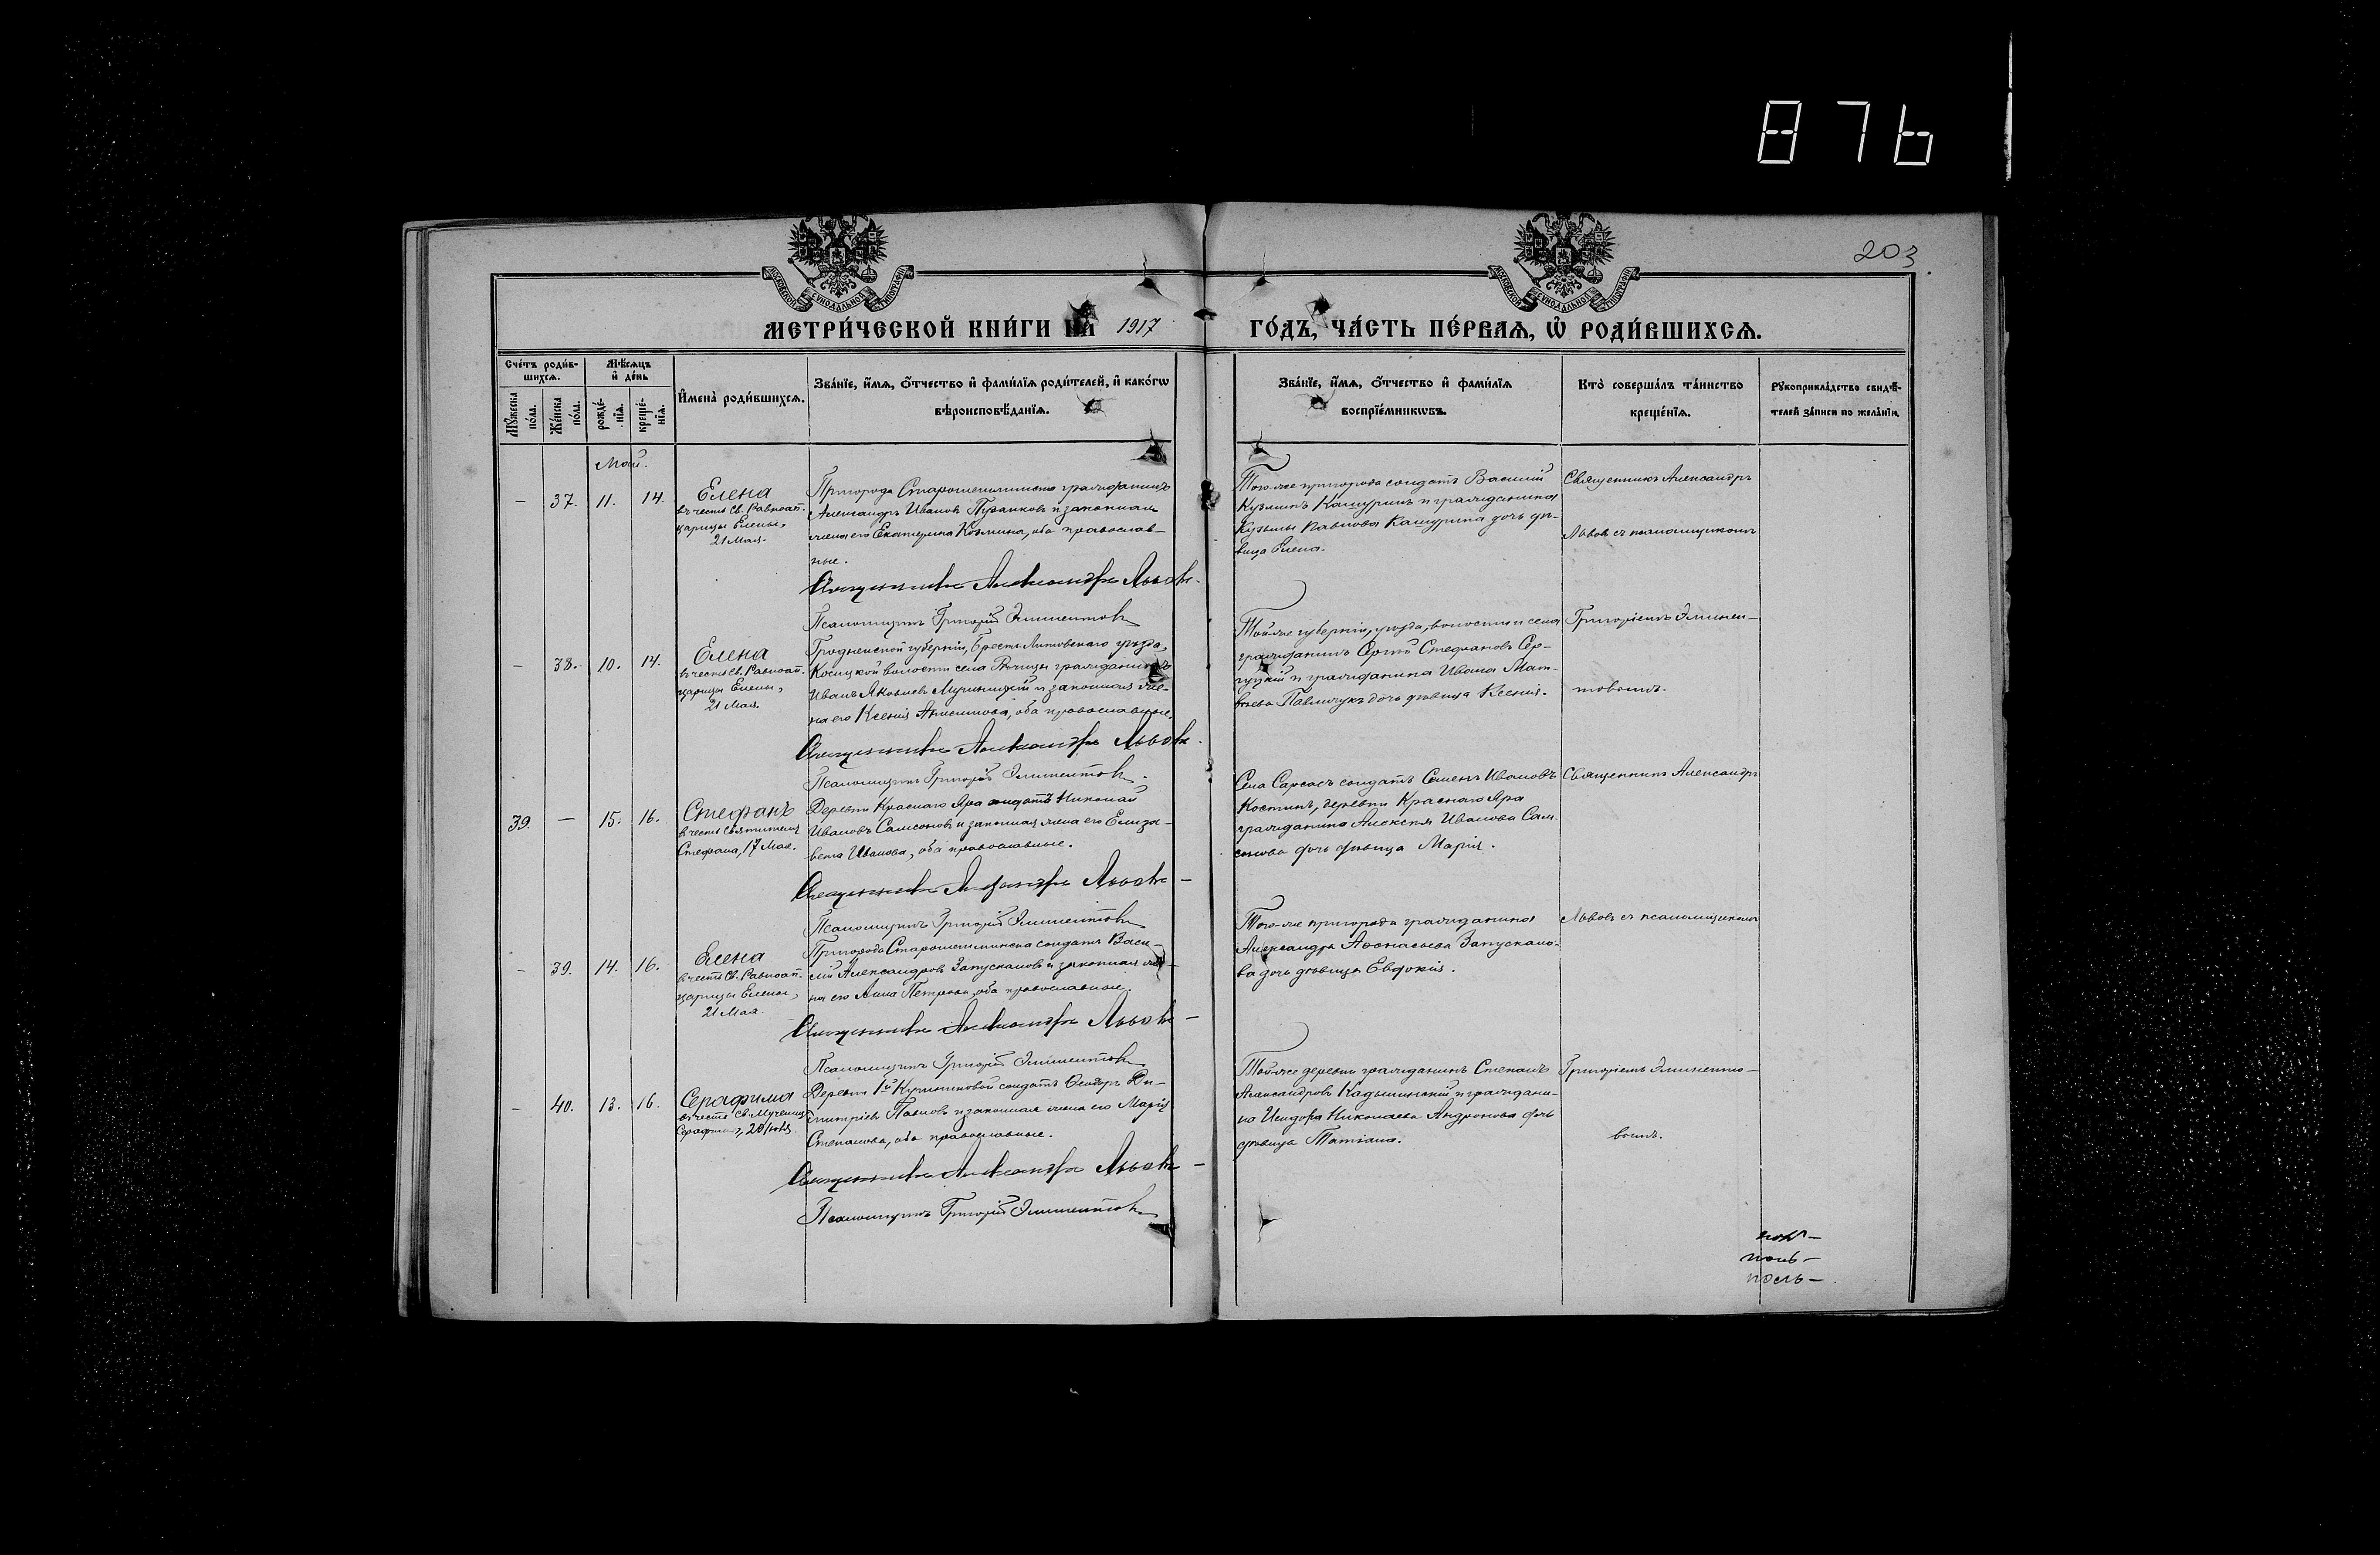 876
203
МОСКОВСКОЙ СУНОДАЛЬНОЙ ТИПОГРАФІИ
МОСКОВСКОЙ СУНОДАЛЬНОЙ ТИПОГРАФІИ
МЕТРИ́ЧЕСКОЙ КНИ́ГИ НА 1917
ГО́ДЪ, ЧА́СТЬ ПЕ́РВАЯ, Ѡ҆ РОДИ́ВШИХСЯ.
Сче́тъ роди́в-
шихся.
Мѣ́сяцъ
и҆ де́нь
Мꙋ́жеска
по́ла.
Же́нска
по́ла.
рожде́-
нїя.
креще́-
нїя.
И҆мена̀ роди́вшихся.
Зва́нїе, и҆́мя, ѻ҆́тчество и҆ фами́лїя роди́телей, и҆ како́гѡ
вѣроисповѣ́данїя.
Зва́нїе, и҆́мя, ѻ҆́тчество и҆ фами́лїя
воспрїе́мникѡвъ.
Кто̀ соверша́лъ та́инство
креще́нїя.
Рꙋкоприкла́дство свидѣ́-
телей за́писи по жела́нїю.
Май.
— 37. 11. 14.
Елена
въ честь Св. Равноап.
царицы Елены,
21 Мая.
Пригорода Старошешминска гражданинъ
Александръ Ивановъ и законная
жена его Екатерина Козмина, оба православ-
ные.
Священникъ Александръ Львовъ.
Псаломщикъ Григорій Элпинентовъ
Того-же пригорода солдатъ Василій
Кузминъ Кашуринъ и гражданина
Кузьмы Павлова Кашурина дочь дѣ-
вица Елена.
Священникъ Александръ
Львовъ съ псаломщикомъ
— 38. 10. 14.
Елена
въ честь Св. Равноап.
царицы Елены,
21 Мая.
Гродненской губерніи, Брестъ-Литовскаго уѣзда,
Косицкой волости села гражданинъ
Иванъ Яковлевъ и законная же-
на его Ксенія Анисимова, оба православные.
Священникъ Александръ Львовъ.
Псаломщикъ Григорій
Той-же губерніи, уѣзда, волости и села
гражданинъ Сергій Стефановъ Сер-
гуцкій и гражданина Ивана Мат-
вѣева Павличукъ дочь дѣвица Ксенія.
Григоріемъ
товымъ.
39. — 15. 16.
Стефанъ
въ честь Святителя
Стефана, 17 Мая.
Деревни Краснаго Яра солдатъ Николай
Ивановъ Самсоновъ и законная жена его Елиза-
вета Иванова, оба православные.
Священникъ Александръ Львовъ
Псаломщикъ Григорій
Села Сарсасъ солдатъ Семенъ Ивановъ
Костинъ, деревни Краснаго Яра
гражданина Алексѣя Иванова Сам-
сонова дочь дѣвица Марія.
Священникъ Александръ
— 39. 14. 16.
Елена
въ честь Св. Равноап.
царицы Елены,
21 Мая.
Пригорода Старошешминска солдатъ Васи-
лій Александровъ Запускаловъ и законная же-
на его Анна Петрова, оба православные.
Священникъ Александръ Львовъ
Псаломщикъ Григорій
Того-же пригорода гражданина
Александра Аѳонасьева Запускало-
ва дочь дѣвица Евдокія.
Львовъ съ псаломщикомъ
— 40. 13. 16.
Серафима
въ честь Св. Мученицы
Серафимы, 29 Іюля.
Деревни 1й солдатъ Ѳеодоръ Ди-
митріевъ Павловъ и законная жена его Марія
Степанова, оба православные.
Священникъ Александръ Львовъ
Псаломщикъ Григорій
Той-же деревни гражданинъ Степанъ
Александровъ Кадышинскій и граждани-
на Исидора Николаева Андронова дочь
дѣвица Татіана.
Григоріемъ
вымъ.